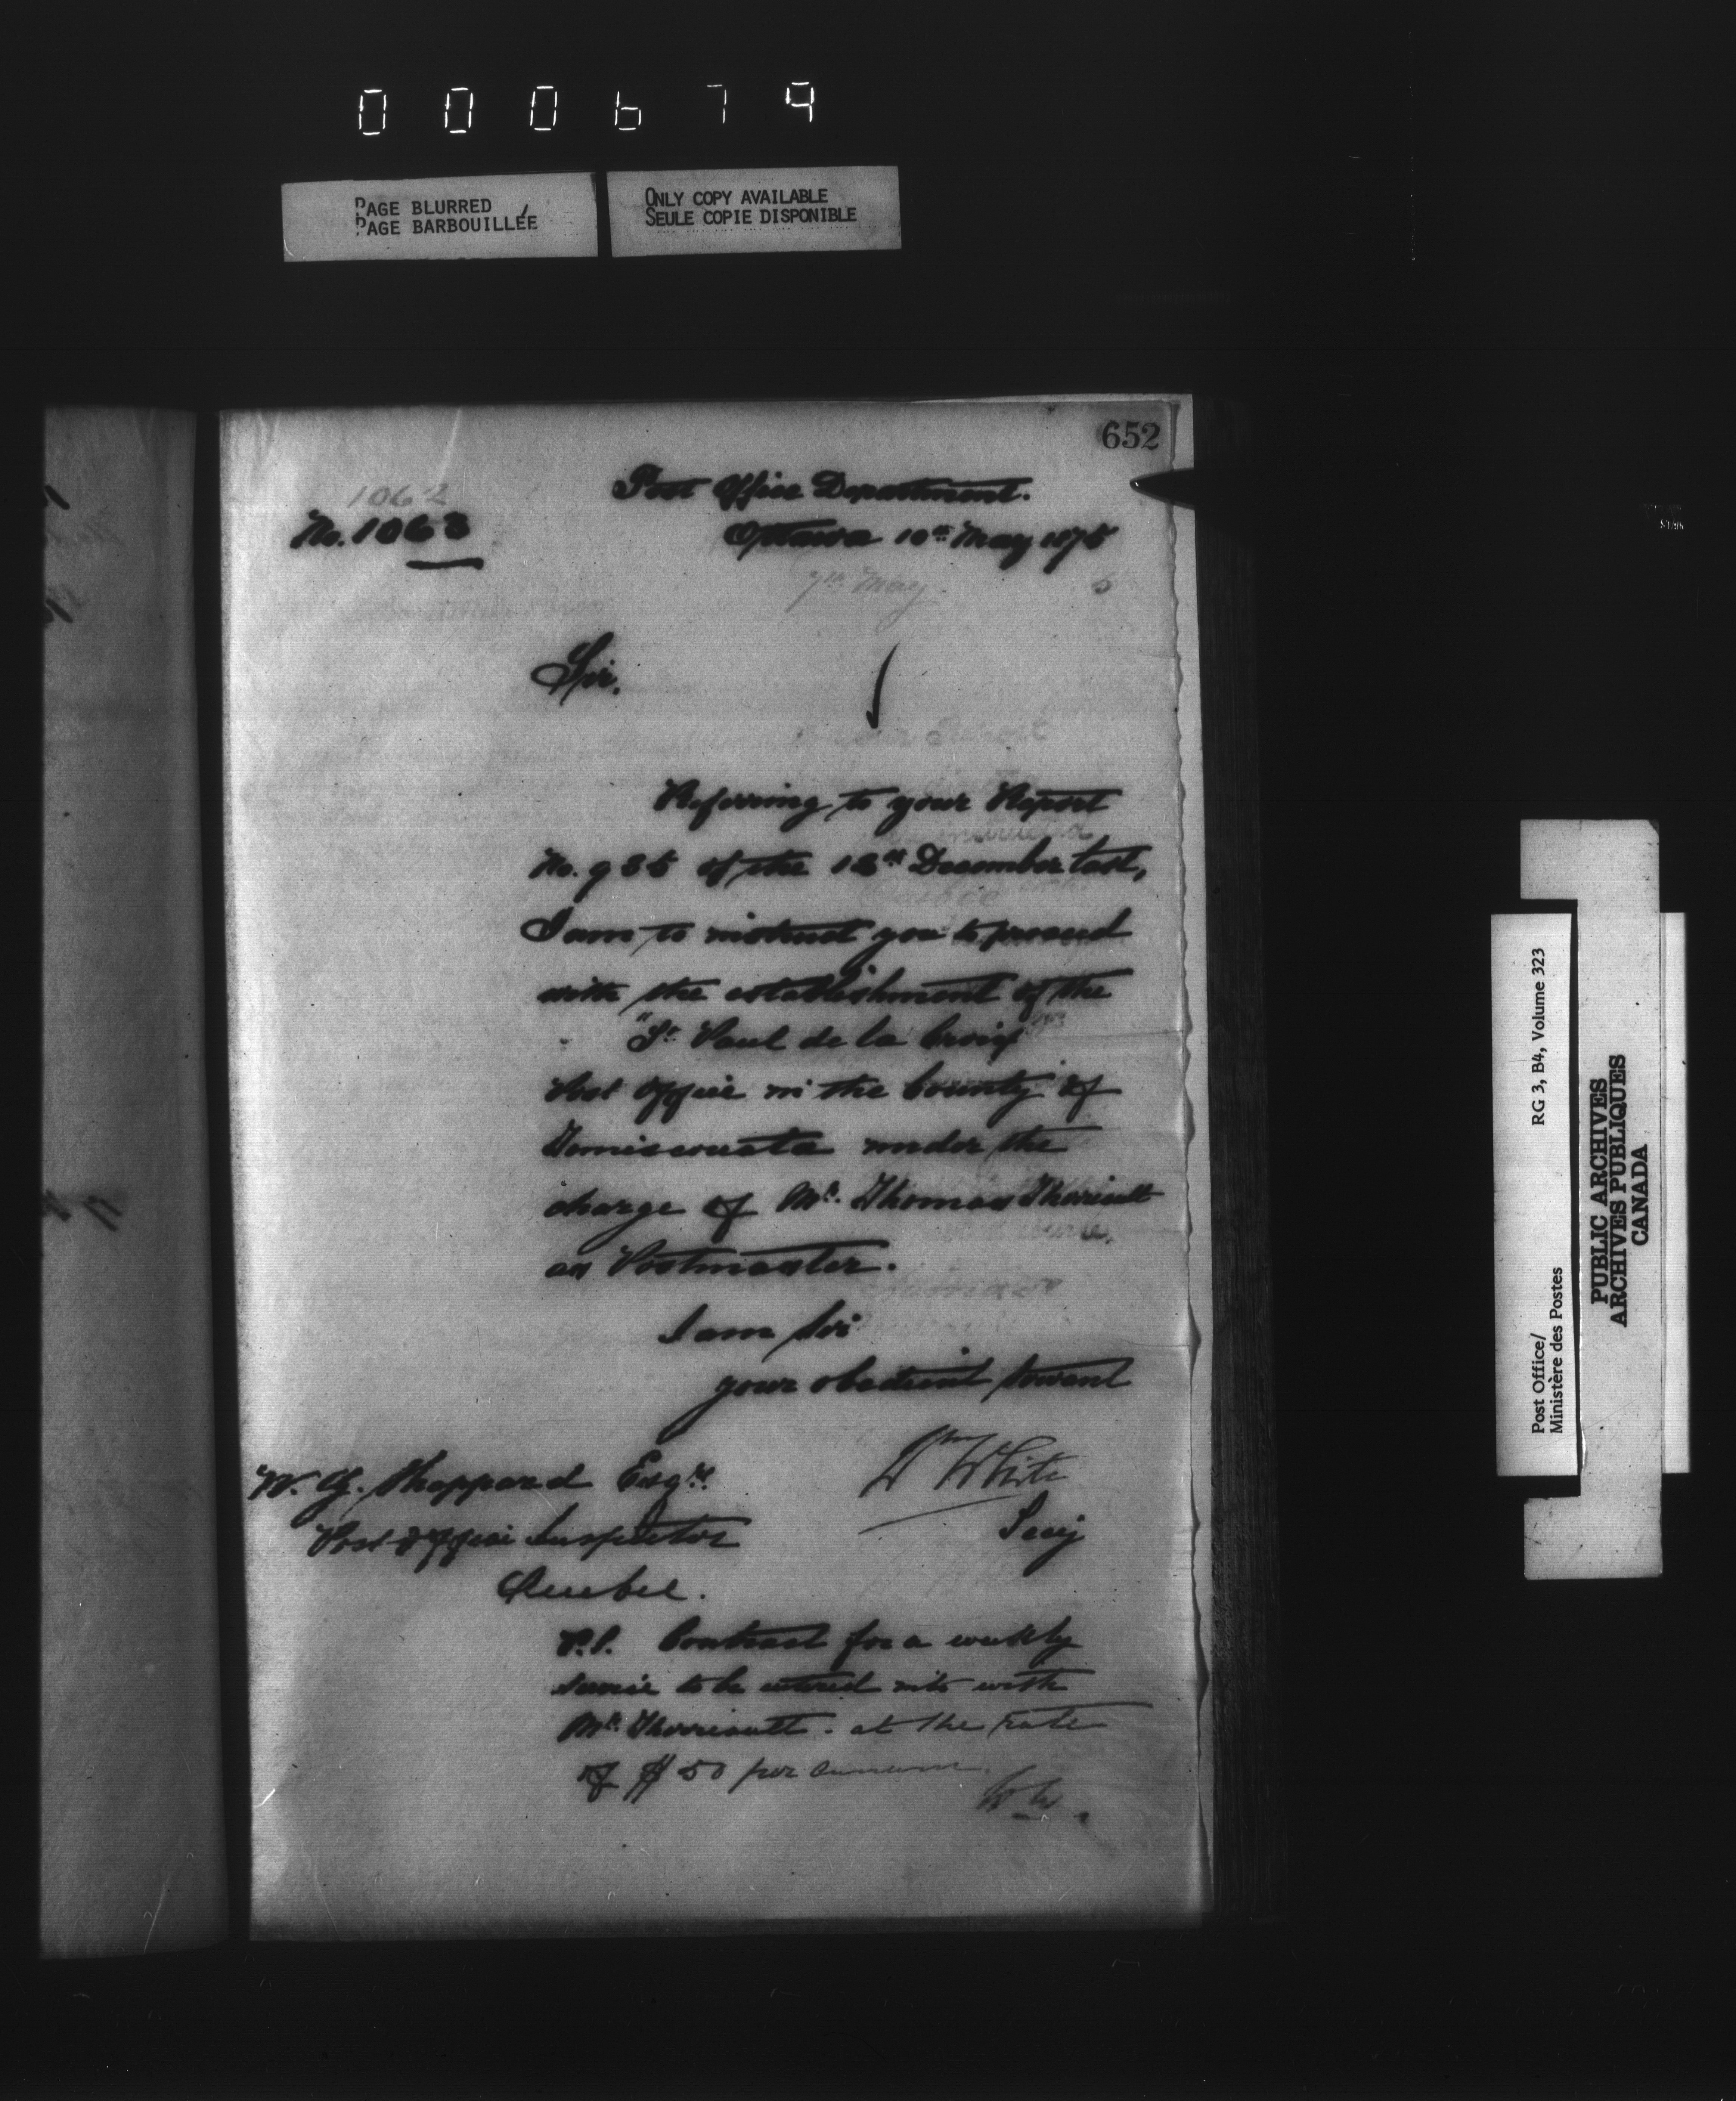 000679
PAGE BLURRED
PAGE BARBOUILLÉE
ONLY COPY AVAILABLE
SEULE COPIE DISPONIBLE
652
1062
Post Office Department.
No. 1063
Ottawa 10th May 1875
7th May
Sir,
Referring to your Report
No. 935 of the 12th December last,
I am to instruct you to proceed
with the establishment of the
"St. Paul de la Croix"
Post Office in the County of
Temiscouata under the
charge of Mr. Thomas Theriault
as Postmaster.
I am Sir
your obedient servant
Wm White
Secy
W. G. Sheppard Esqre.
Post Office Inspector
Quebec.
P.S. Contract for a weekly
service to be entered into with
Mr. Therriault. at the rate
of $50 per annum.
W.W.
Post Office/
Ministère des Postes
RG 3, B4, Volume 323
PUBLIC ARCHIVES
ARCHIVES PUBLIQUES
CANADA